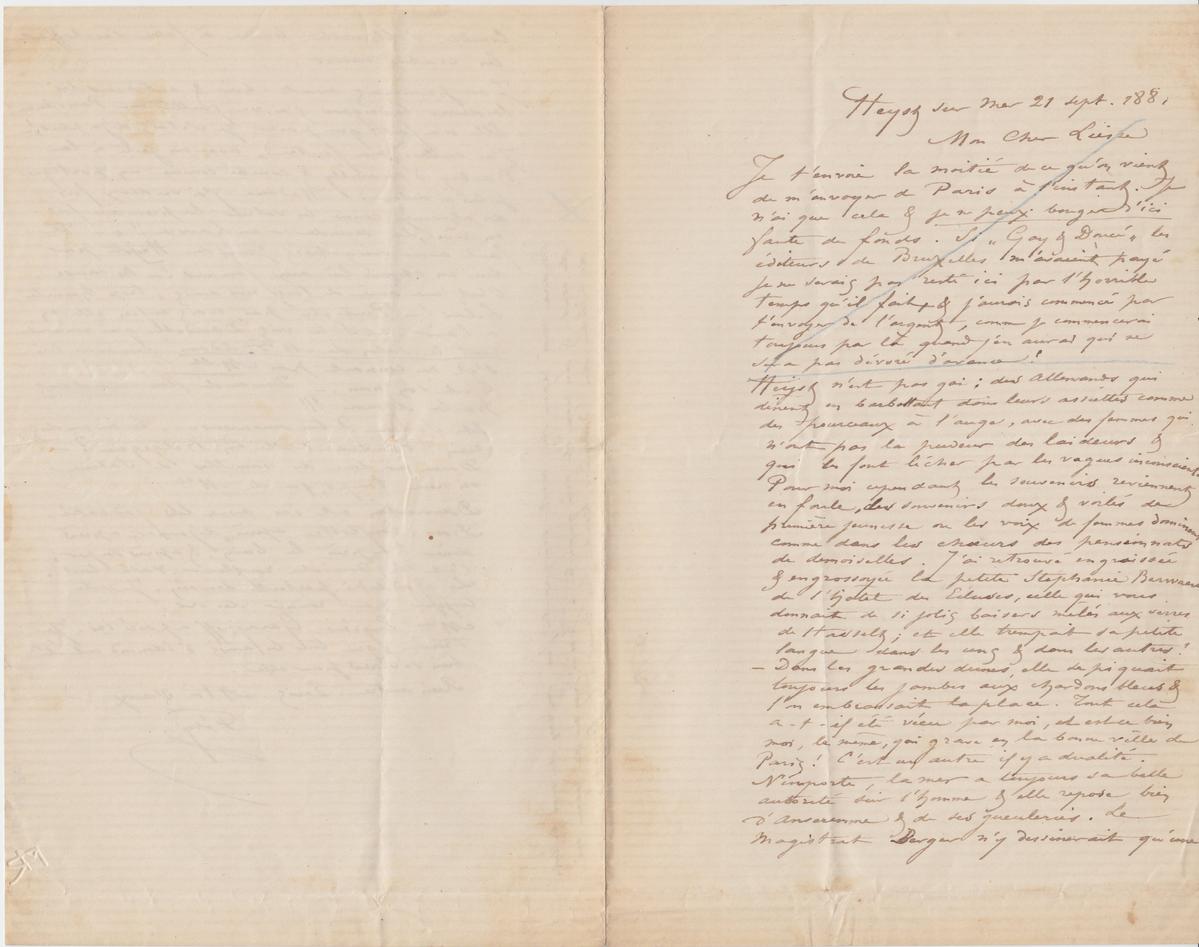 Heyst sur Mer 21 sept. 1881
Mon Cher Liesse
Je t'envoie la moitié de ce qu'on vient
de m'envoyer de Paris à l'instant. Je
n'ai que cela & je ne peux bouger d'ici
faute de fonds. Si „Gay & Doucé„ les
éditeurs de Bruxelles m'avaient payé
je ne serais pas resté ici par l'horrible
temps qu'il fait & j'aurais commencé par
t'envoyer de l'argent, comme je commencerai
toujours par là quand j'en aurai qui ne
sera pas dévoré d'avance !
Heyst n'est pas gai ; des Allemands qui
dinent en barbottant dans leurs assiettes comme
des pourceaux à l'auge, avec des femmes qui
n'ont pas la pudeur des laideurs &
qui les font lécher par les vagues inconscientes
Pour moi cependant les souvenirs reviennent
en foule, des souvenirs doux & voilés de
première jeunesse ou les voix de femmes dominent
comme dans les chœurs des pensionnats
de demoiselles. J'ai retrouvé engraissée
& engrossoyée la petite Stephanie
de l'hôtel des Ecluses, celle qui vous
donnait de si jolis baisers mêlés aux verres
de Hasselt ; et elle trempait sa petite
langue dans les uns & dans les autres !
– Dans les grandes dunes, elle se piquait
toujours les jambes aux chardons bleus &
l'on embrassait la place. Tout cela
a-t-il été vécu par moi, et est-ce bien
moi, le même, qui grave en la bonne ville de
Paris ! C'est un autre il y a dualité.
N'importe, la mer a toujours sa belle
autorité sur l'homme & elle repose bien
d'Anseremme & de ses gueuleries. Le
Magistrat Berger n'y dessinerait qu'une